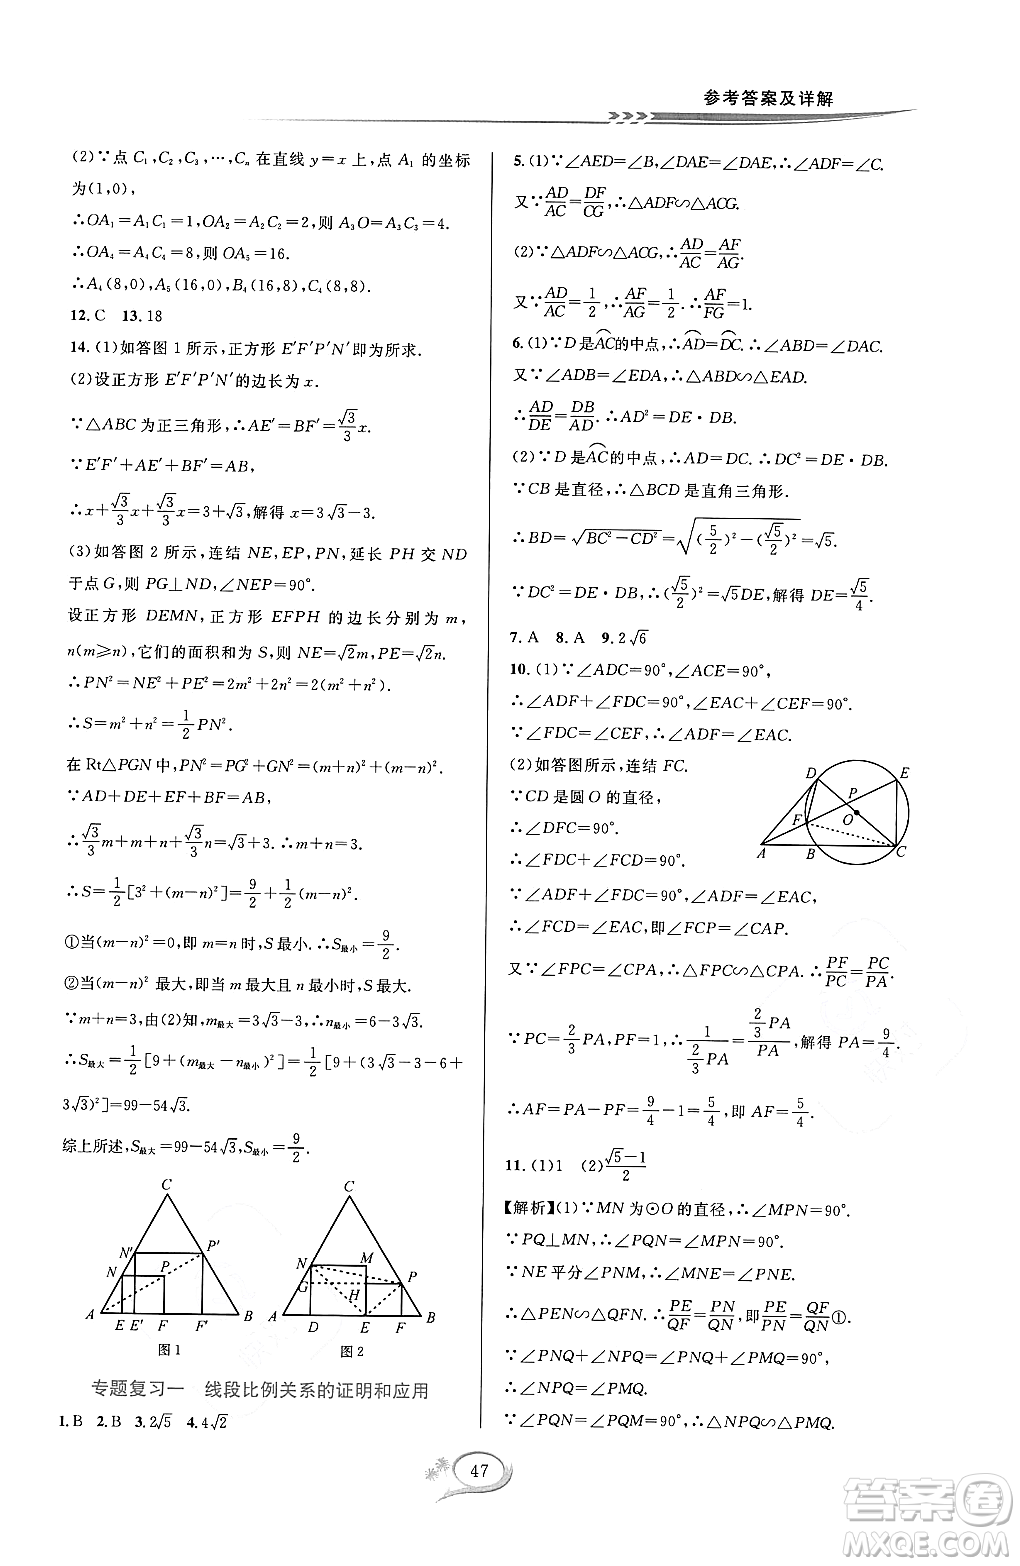 参考答案及详解
(2)∵点 C₁,C₂,C₃,…,Cₙ 在直线 y=x 上,点 A₁ 的坐标
为(1,0),
∴OA₁=A₁C₁=1,OA₂=A₂C₂=2,则 A₃O=A₃C₃=4.
∴OA₄=A₄C₄=8,则OA₅=16.
∴A₄(8,0),A₅(16,0),B₄(16,8),C₄(8,8).
12.C 13.18
14.(1)如答图 1 所示,正方形 E′F′P′N′即为所求.
(2)设正方形 E′F′P′N′的边长为 x.
∵△ABC 为正三角形,∴AE′=BF′=√3/3 x.
∵E′F′+AE′+BF′=AB,
∴x+√3/3 x+√3/3 x=3+√3,解得 x=3√3-3.
(3)如答图 2 所示,连结 NE,EP,PN,延长 PH 交 ND
于点 G,则 PG⊥ND,∠NEP=90°.
设正方形 DEMN,正方形 EFPH 的边长分别为 m,
n(m≥n),它们的面积和为 S,则 NE=√2m,PE=√2n.
∴PN²=NE²+PE²=2m²+2n²=2(m²+n²).
∴S=m²+n²=1/2 PN².
在 Rt△PGN 中,PN²=PG²+GN²=(m+n)²+(m-n)².
∵AD+DE+EF+BF=AB,
∴√3/3 m+m+n+√3/3 n=√3+3,∴m+n=3.
∴S=1/2[3²+(m-n)²]=9/2+1/2(m-n)².
①当(m-n)²=0,即 m=n时,S 最小.∴S最小=9/2.
②当(m-n)²最大,即当 m 最大且 n 最小时,S最大.
∵m+n=3,由(2)知,m最大=3√3-3,∴n最小=6-3√3.
∴S最大=1/2[9+(m最大-n最小)²]=1/2[9+(3√3-3-6+
3√3)²]=99-54√3.
综上所述,S最大=99-54√3,S最小=9/2.
C
N′ P′
N P
A E E′ F F′ B
图1
C
N M
G H P
A D E F B
图2
专题复习一 线段比例关系的证明和应用
1.B 2.B 3.2√5 4.4√2
5.(1)∵∠AED=∠B,∠DAE=∠DAE,∴∠ADF=∠C.
又∵AD/AC=DF/CG,∴△ADF∽△ACG.
(2)∵△ADF∽△ACG,∴AD/AC=AF/AG.
又∵AD/AC=1/2,∴AF/AG=1/2.∴AF/FG=1.
6.(1)∵D是AC的中点,∴AD=DC.∴∠ABD=∠DAC.
又∵∠ADB=∠EDA,∴△ABD∽△EAD.
∴AD/DE=DB/AD.∴AD²=DE·DB.
(2)∵D 是AC的中点,∴AD=DC.∴DC²=DE·DB.
∵CB 是直径,∴△BCD 是直角三角形.
∴BD=√(BC²-CD²)=√((5/2)²-(√5/2)²)=√5.
∵DC²=DE·DB,∴(√5/2)²=√5DE,解得 DE=√5/4.
7.A 8.A 9.2√6
10.(1)∵∠ADC=90°,∠ACE=90°,
∴∠ADF+∠FDC=90°,∠EAC+∠CEF=90°.
∵∠FDC=∠CEF,∴∠ADF=∠EAC.
(2)如答图所示,连结 FC.
∵CD 是圆 O 的直径,
∴∠DFC=90°.
∴∠FDC+∠FCD=90°.
∵∠ADF+∠FDC=90°,∠ADF=∠EAC,
∴∠FCD=∠EAC,即∠FCP=∠CAP.
D E
P
F O
A B C
又∵∠FPC=∠CPA,∴△FPC∽△CPA.∴PF/PC=PC/PA.
∵PC=2/3 PA,PF=1,∴1/(2/3 PA)=(2/3 PA)/PA,解得 PA=9/4.
∴AF=PA-PF=9/4-1=5/4,即 AF=5/4.
11.(1)1 (2)(√5-1)/2
【解析】(1)∵MN 为⊙O 的直径,∴∠MPN=90°.
∵PQ⊥MN,∴∠PQN=∠MPN=90°.
∵NE平分∠PNM,∴∠MNE=∠PNE.
∴△PEN∽△QFN.∴PE/QF=PN/QN,即PE/PN=QF/QN①.
∵∠PNQ+∠NPQ=∠PNQ+∠PMQ=90°,
∴∠NPQ=∠PMQ.
∵∠PQN=∠PQM=90°,∴△NPQ∽△PMQ.
47
答案圈
MXQE.COM